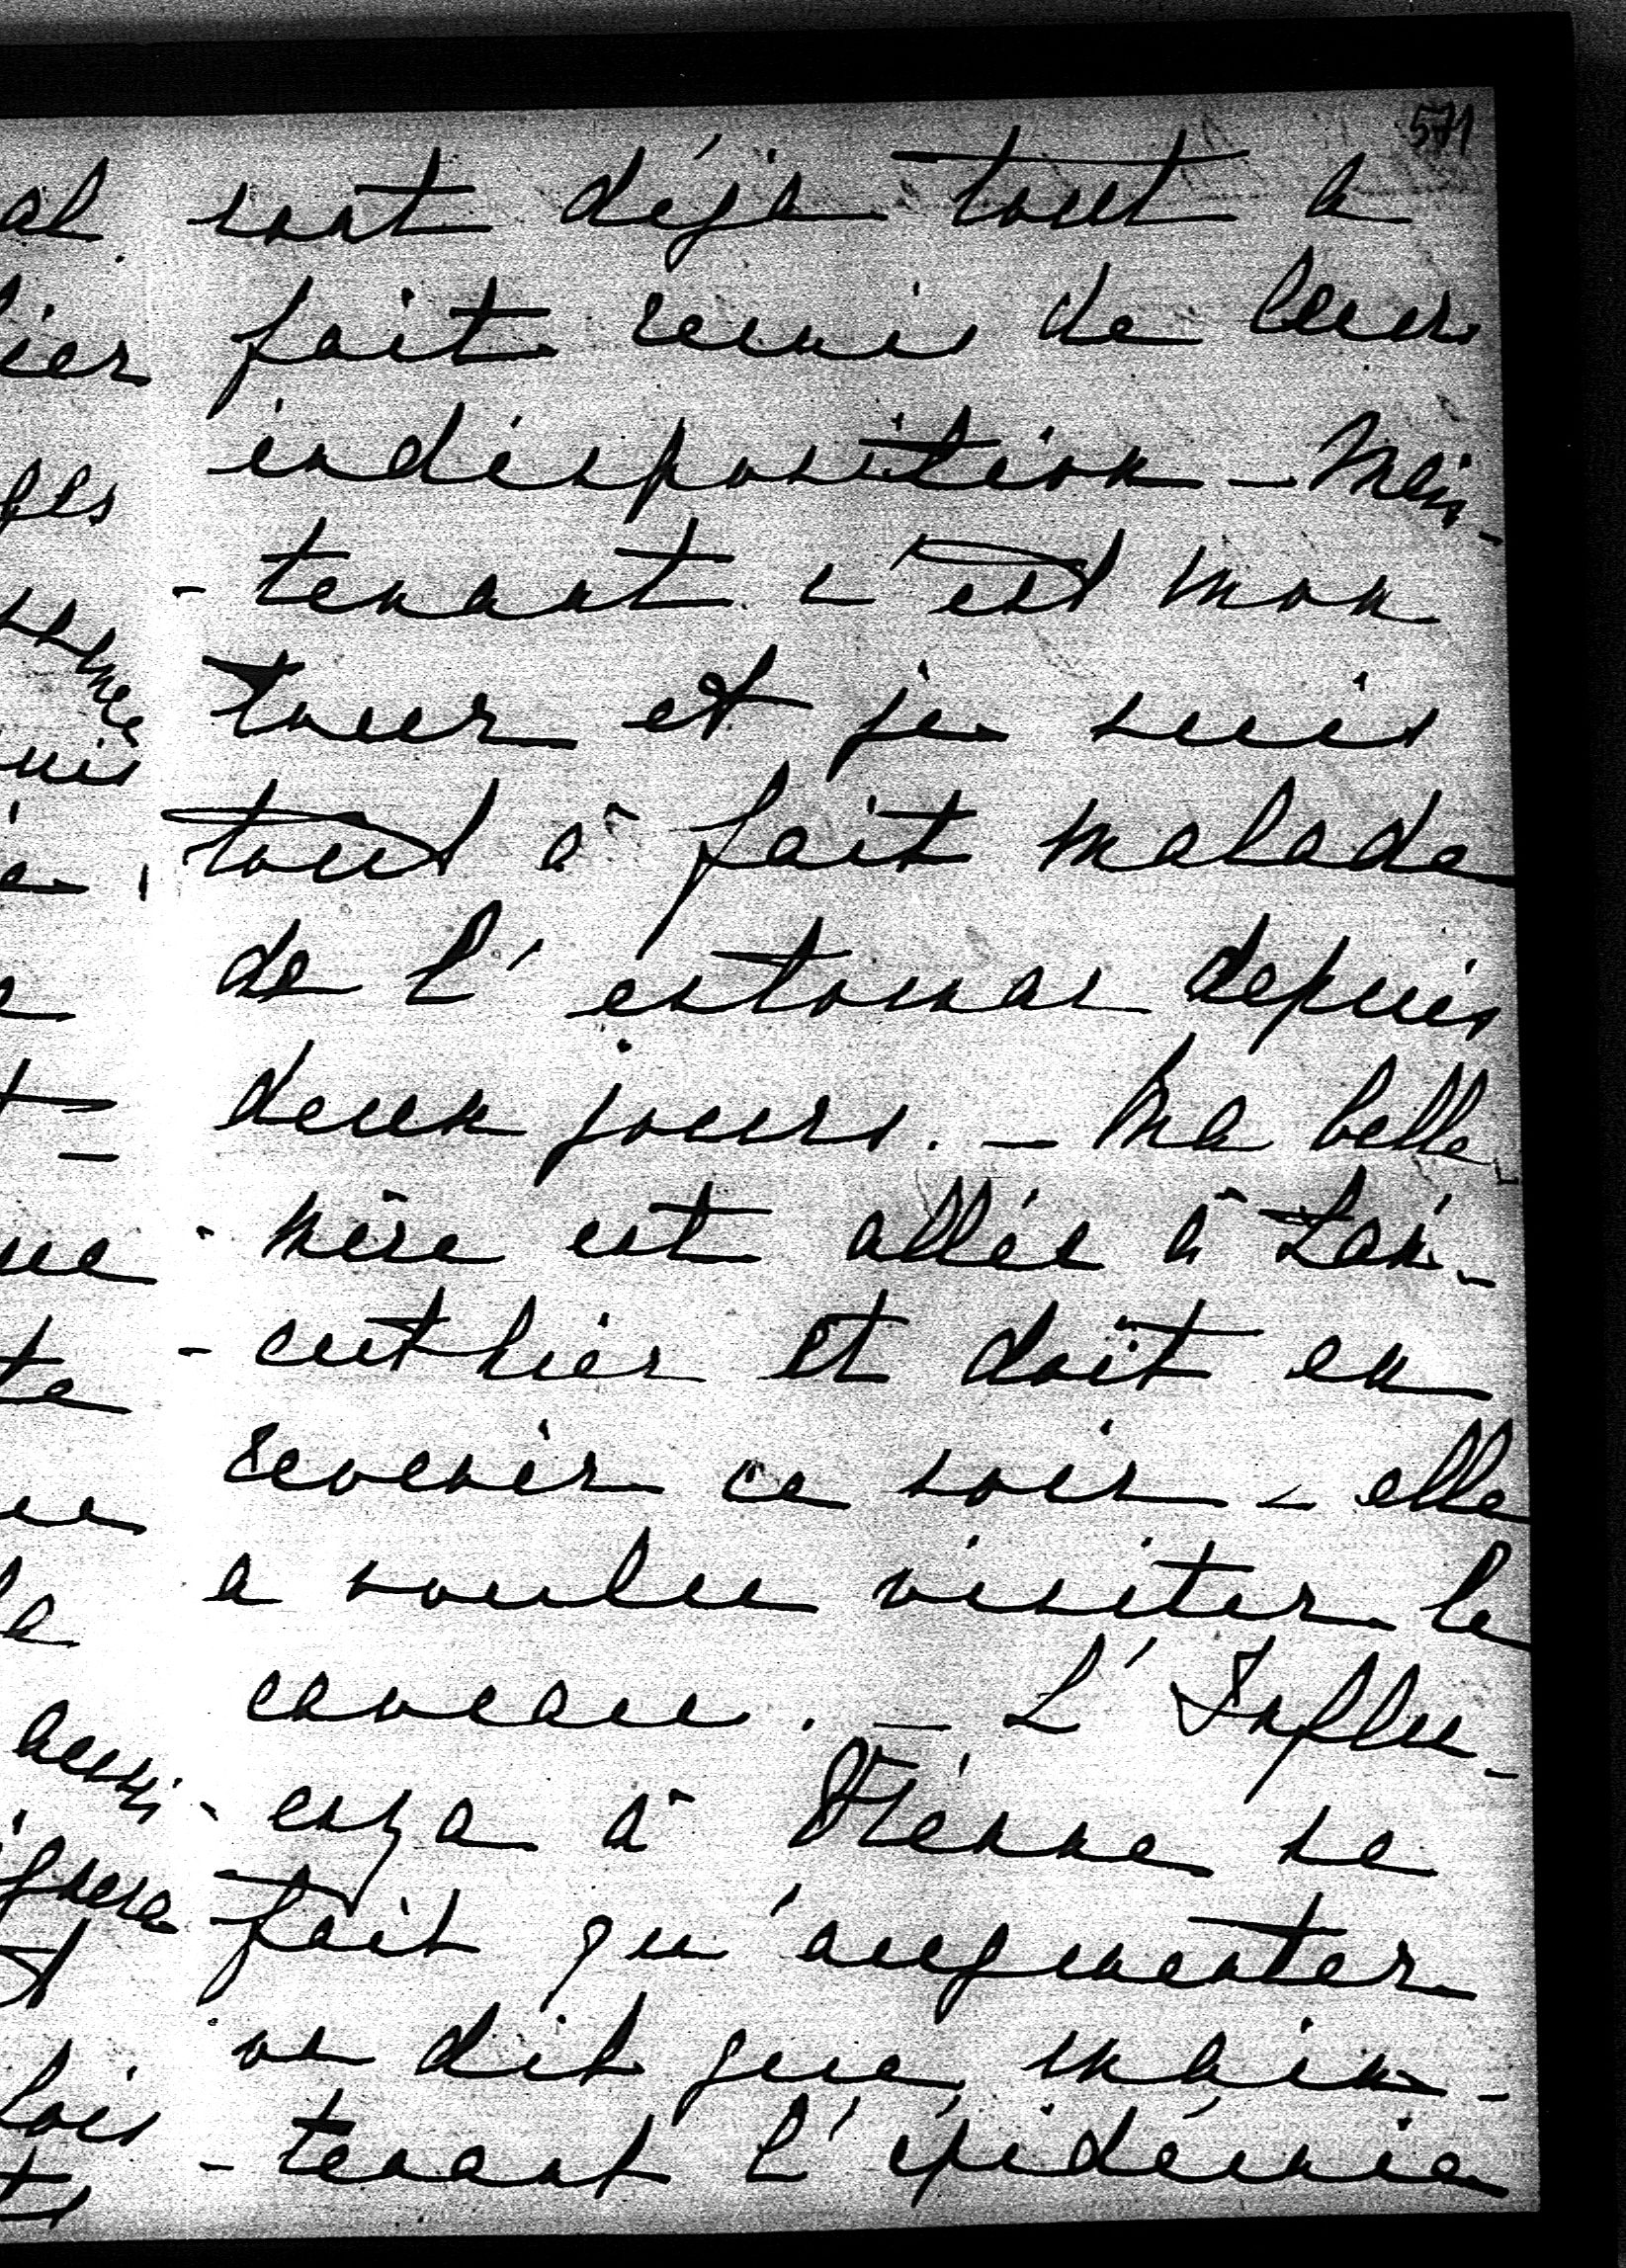 571
sont déja tout a
fait remis de leur
indisposition - Main-
- tenant c'est mon
tour et je suis
tout à fait malade
de l'estomac depuis
deux jours. - Ma belle-
- mère est allée à Lan-
- cut hier et doit en
revenir ce soir - elle
a voulu visiter le
caveau. - L'Influ-
- enza à Vienne ne
fait qu'augmenter
on dit que main-
- tenant l'épidémie